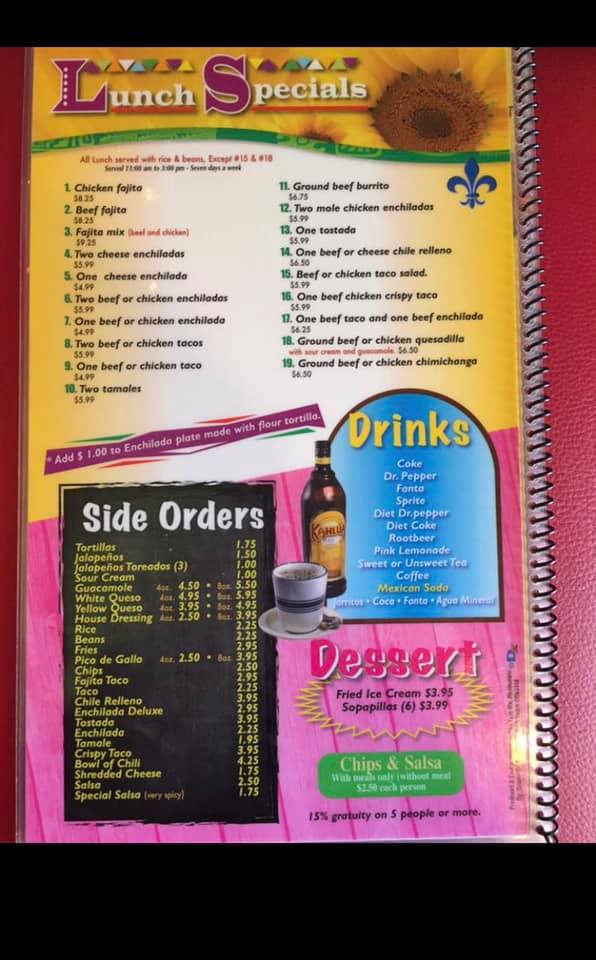 Lunch Specials
All Lunch served with rice & beans, Except #15 & #18
Served 11:00 am to 3:00 pm - Seven days a week
1. Chicken fajita
$8.25
2. Beef fajita
$8.25
3. Fajita mix (beef and chicken)
$9.25
4. Two cheese enchiladas
$5.99
5. One cheese enchilada
$4.99
6. Two beef or chicken enchiladas
$5.99
7. One beef or chicken enchilada
$4.99
8. Two beef or chicken tacos
$5.99
9. One beef or chicken taco
$4.99
10. Two tamales
$5.99
11. Ground beef burrito
$6.75
12. Two mole chicken enchiladas
$5.99
13. One tostada
$5.99
14. One beef or cheese chile relleno
$6.50
15. Beef or chicken taco salad.
$5.99
16. One beef chicken crispy taco
$5.99
17. One beef taco and one beef enchilada
$6.25
18. Ground beef or chicken quesadilla
with sour cream and guacamole. $6.50
19. Ground beef or chicken chimichanga
$6.50
* Add $ 1.00 to Enchilada plate made with flour tortilla.
Side Orders
Tortillas 1.75
Jalapeños 1.50
Jalapeños Toreados (3) 1.00
Sour Cream 1.00
Guacamole 4oz. 4.50 • 8oz. 5.50
White Queso 4oz. 4.95 • 8oz. 5.95
Yellow Queso 4oz. 3.95 • 8oz. 4.95
House Dressing 4oz. 2.50 • 8oz. 3.95
Rice 2.25
Beans 2.25
Fries 2.95
Pico de Gallo 4oz. 2.50 • 8oz. 3.95
Chips 2.50
Fajita Taco 2.95
Taco 2.25
Chile Relleno 3.95
Enchilada Deluxe 2.95
Tostada 3.95
Enchilada 2.25
Tamale 1.95
Crispy Taco 3.95
Bowl of Chili 4.25
Shredded Cheese 1.75
Salsa 2.50
Special Salsa (very spicy) 1.75
Drinks
Coke
Dr. Pepper
Fanta
Sprite
Diet Dr.pepper
Diet Coke
Rootbeer
Pink Lemonade
Sweet or Unsweet Tea
Coffee
Mexican Soda
Jarritos • Coca • Fanta • Agua Mineral
KAHLÚA
Dessert
Fried Ice Cream $3.95
Sopapillas (6) $3.99
Chips & Salsa
With meals only (without meal
$2.50 each person
15% gratuity on 5 people or more.